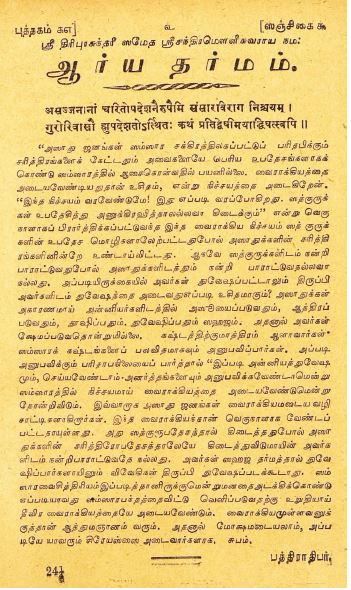 புத்தகம் கஎ] உ [ஸஞ்சிகை ௯
ஸ்ரீ திரிபுரசுந்தரீ ஸமேத ஸ்ரீசக்திரமௌளீசுவராய நம:
ஆர்ய தர்மம்.
असज्जनानां चरितोपदेशनैरुपैमि संसारविराग निश्चयम् ।
गुरोरिवासौ ह्युपदेशतोऽस्थितः कथं प्रतिद्वेषीमयाद्विपत्स्वपि ॥
"அஸாது ஜனங்கள் ஸம்ஸார சக்கிரத்திலகப்பட்டுப் பரிதபிக்கும்
சரித்திரங்களைக் கேட்டதும் அவைகளையே பெரிய உபதேசங்களாகக்
கொண்டு ஸம்ஸாரத்தில் ஆசைகொள்வதில் பயனில்லை. வைராக்கியத்தை
அடையவேண்டியதுதான் உசிதம், என்று நிச்சயத்தை அடைகிறேன்.
"இந்த நிச்சயம் வரவேண்டுமே! இது எப்படி வரப்போகிறது. ஸத்குருக்
கள் உபதேசித்து அனுக்ரஹித்தாலல்லவா கிடைக்கும்" என்று வெகு
காலாகப் பிரார்த்திக்கப்பட்டுவந்த இந்த வைராக்கிய நிச்சயம் ஸத் குருக்
களின் உபதேச மொழிகளாலேற்பட்டதுபோல் அஸாதுக்களின் சரித்தி
ரங்களினின்றே உண்டாய்விட்டது. ஆகவே ஸத்குருக்களிடம் நன்றி
பாராட்டுவதுபோல் அஸாதுக்களிடத்தும் நன்றி பாராட்டுவதல்லவா
நல்லது. அப்படியிருக்கையில் அவர்கள் துவேஷப்பட்டாலும் திருப்பி
அவர்களிடம் துவேஷத்தை அடைவதுஎப்படி உசிதமாகும்? அஸாதுக்கள்
அகாரணமாய் அன்னியர்களிடத்தில் அஸூயைப்படுவதும், ஆத்திரப்
படுவதும், தூஷிப்பதும், துவேஷிப்பதும் ஸஹஜம். அதனால் அவர்கள்
க்ஷேமப்படுவதொன்றுமில்லை. கஷ்டத்திற்குமாத்திரம் ஆளாவார்கள்.
ஸம்ஸாரக் கஷ்டங்களைப் பலவிதமாகவும் அனுபவிப்பார்கள். அப்படி
அனுபவிக்கும் பரிதாபநிலையைப் பார்த்தால் "இப்படி அன்னியத்துவேஷ
மும், செய்யவேண்டாம்-அனர்த்தங்களையும் அனுபவிக்கவேண்டாமென்று
ஸம்ஸாரத்தில் நிச்சயமாய் வைராக்கியத்தை அடையவேண்டுமென்று
தோன்றிவிடும். இவ்வாறாக அஸாது ஜனங்கள் வைராக்கியமடைய வழி
காட்டிகளாகிறார்கள். இந்த வைராக்கியந்தான் வெகுநாளாக வேண்டப்
பட்டதாயுள்ளது. அது ஸத்குருபதேசத்தால் கிடைத்ததுபோல் அஸா
துக்களின் சரித்திரோபதேசத்தாலேயே கிடைத்துவிடுமாயின் அவர்க
ளிடம் நன்றிபாராட்டுவதே நல்லது. அவர்கள் ஸஹஜ தர்மத்தால் துவே
ஷிப்பார்களாயினும் விவேகிகள் திருப்பி துவேஷப்படக்கூடாது. ஸம்
எப்படியாவது ஸம்ஸாரபந்தத்தைவிட்டு வெளிப்படுவதற்கு உறுதியாய்
தீவிர வைராக்கியத்தையே அடையவேண்டும். வைராக்கியமுள்ளவனுக்
குத்தான் ஆத்மஞானம் வரும். அதனால் மோக்ஷமடையலாம், அப்ப
டியே யாவரும் சிரேயஸ்ஸை அடைவார்களாக. சுபம்.
பத்திராதிபர்.
241